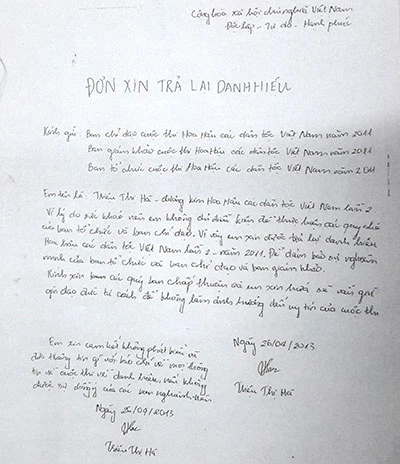 Cộng hòa xã hội chủ nghĩa Việt Nam
Độc lập - Tự do - Hạnh phúc
ĐƠN XIN TRẢ LẠI DANH HIỆU
Kính gửi: Ban chỉ đạo cuộc thi Hoa Hậu các dân tộc Việt Nam năm 2011
Ban giám khảo cuộc thi Hoa Hậu các dân tộc Việt Nam năm 2011
Ban tổ chức cuộc thi Hoa Hậu các dân tộc Việt Nam năm 2011
Em tên là: Triệu Thị Hà - đương kim Hoa Hậu các dân tộc Việt Nam lần 2
Vì lý do sức khoẻ nên em không đủ điều kiện để thực hiện các quy chế
của ban tổ chức và ban chỉ đạo. Vì vậy em xin được trả lại danh hiệu
Hoa hậu các dân tộc Việt Nam lần 2 - năm 2011. Để đảm bảo sự nghiêm
minh của ban tổ chức và ban chỉ đạo và ban giám khảo.
Kính xin ban các quý ban chấp thuận và em xin hứa sẽ vẫn giữ
gìn đạo đức tư cách để không làm ảnh hưởng đến uy tín của cuộc thi
Em xin cam kết không phát biểu và
đưa thông tin gì với báo chí về mọi thông
tin về cuộc thi và danh hiệu, nếu không
được sự đồng ý của các ban ngành trên
Ngày 26/04/2013
Triệu Thị Hà
Ngày 26/04/2013
Triệu Thị Hà